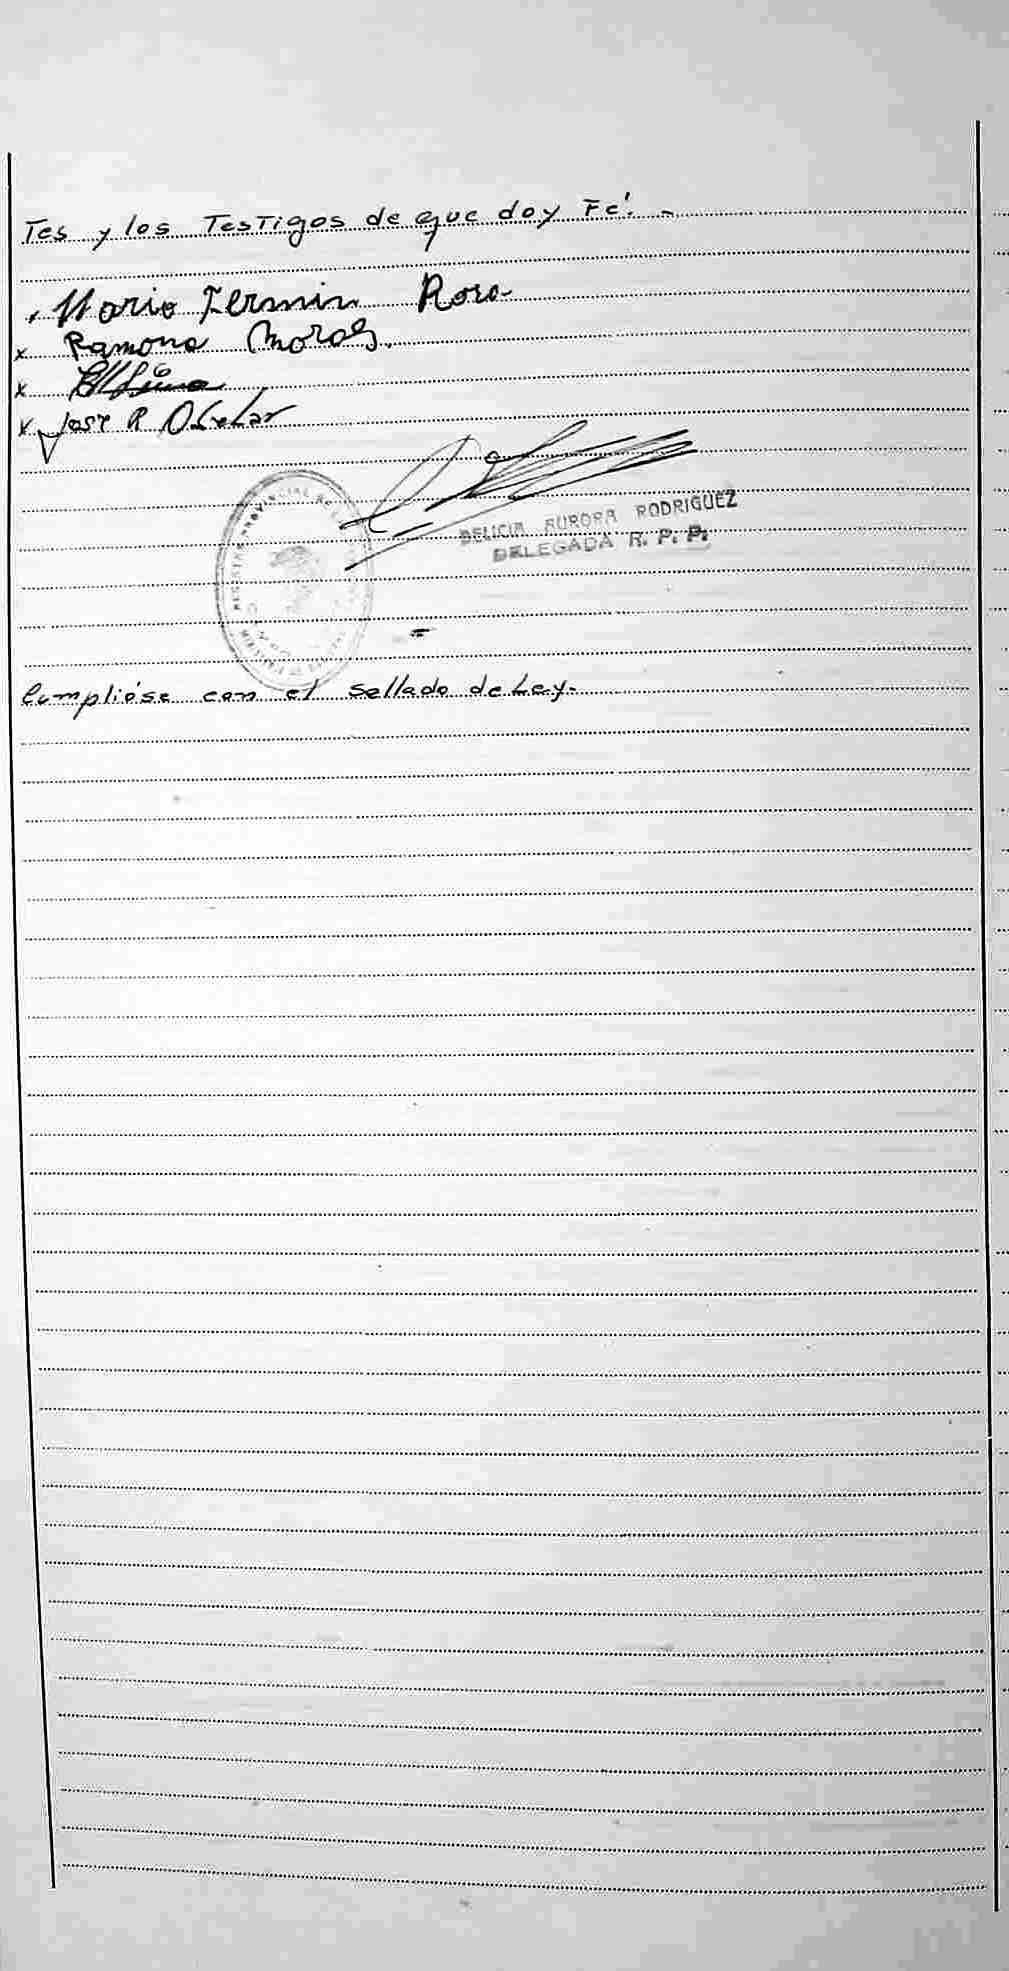 Tes y los Testigos de que doy Fé. -
Mario Fermin Roso
x Ramona Moras.
x
x Jose R
REGISTRO PROVINCIAL
DELICIA AURORA RODRIGUEZ
DELEGADA R. P. P.
Cumplióse con el sellado de Ley.